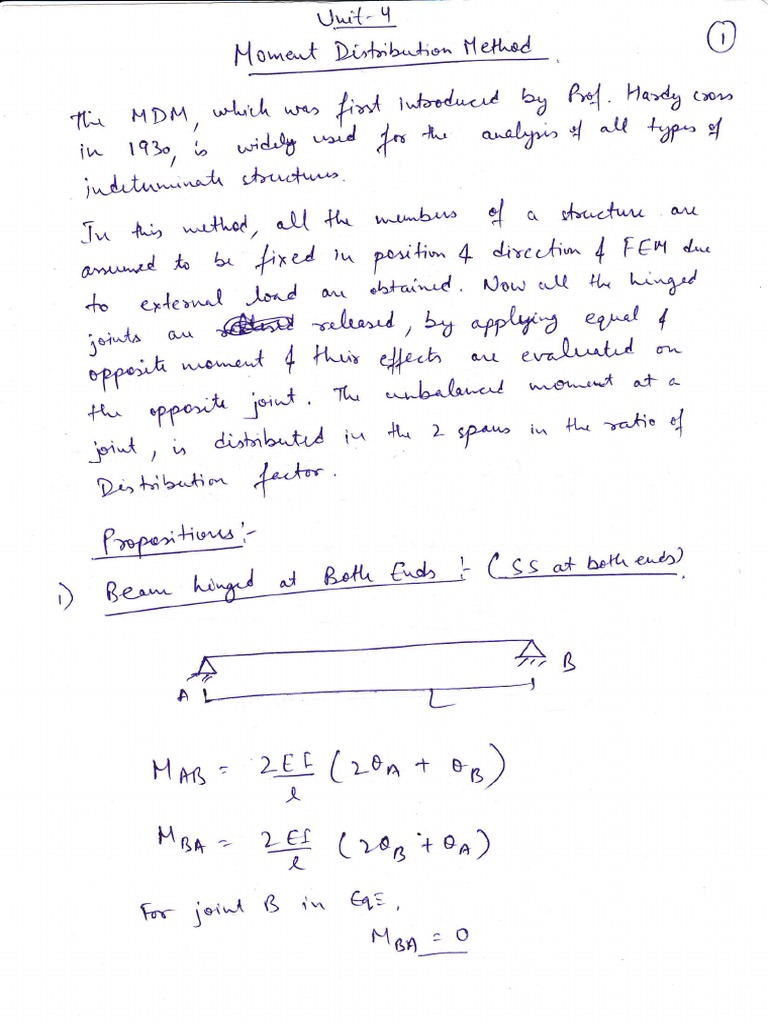 Unit-4
Moment Distribution Method.
1
The MDM, which was first introduced by Prof. Hardy cross
in 1930, is widely used for the analysis of all types of
indeterminate structures.
In this method, all the members of a structure are
assumed to be fixed in position & direction & FEM due
to external load are obtained. Now all the hinged
joints are released, by applying equal &
opposite moment & their effects are evaluated on
the opposite joint. The unbalanced moment at a
joint, is distributed in the 2 spans in the ratio of
Distribution factor.
Propositions:-
i) Beam hinged at Both Ends :- (SS at both ends).
A B
L
M_AB = 2EI/l (2θ_A + θ_B)
M_BA = 2EI/l (2θ_B + θ_A)
For joint B in Eq≡,
M_BA = 0